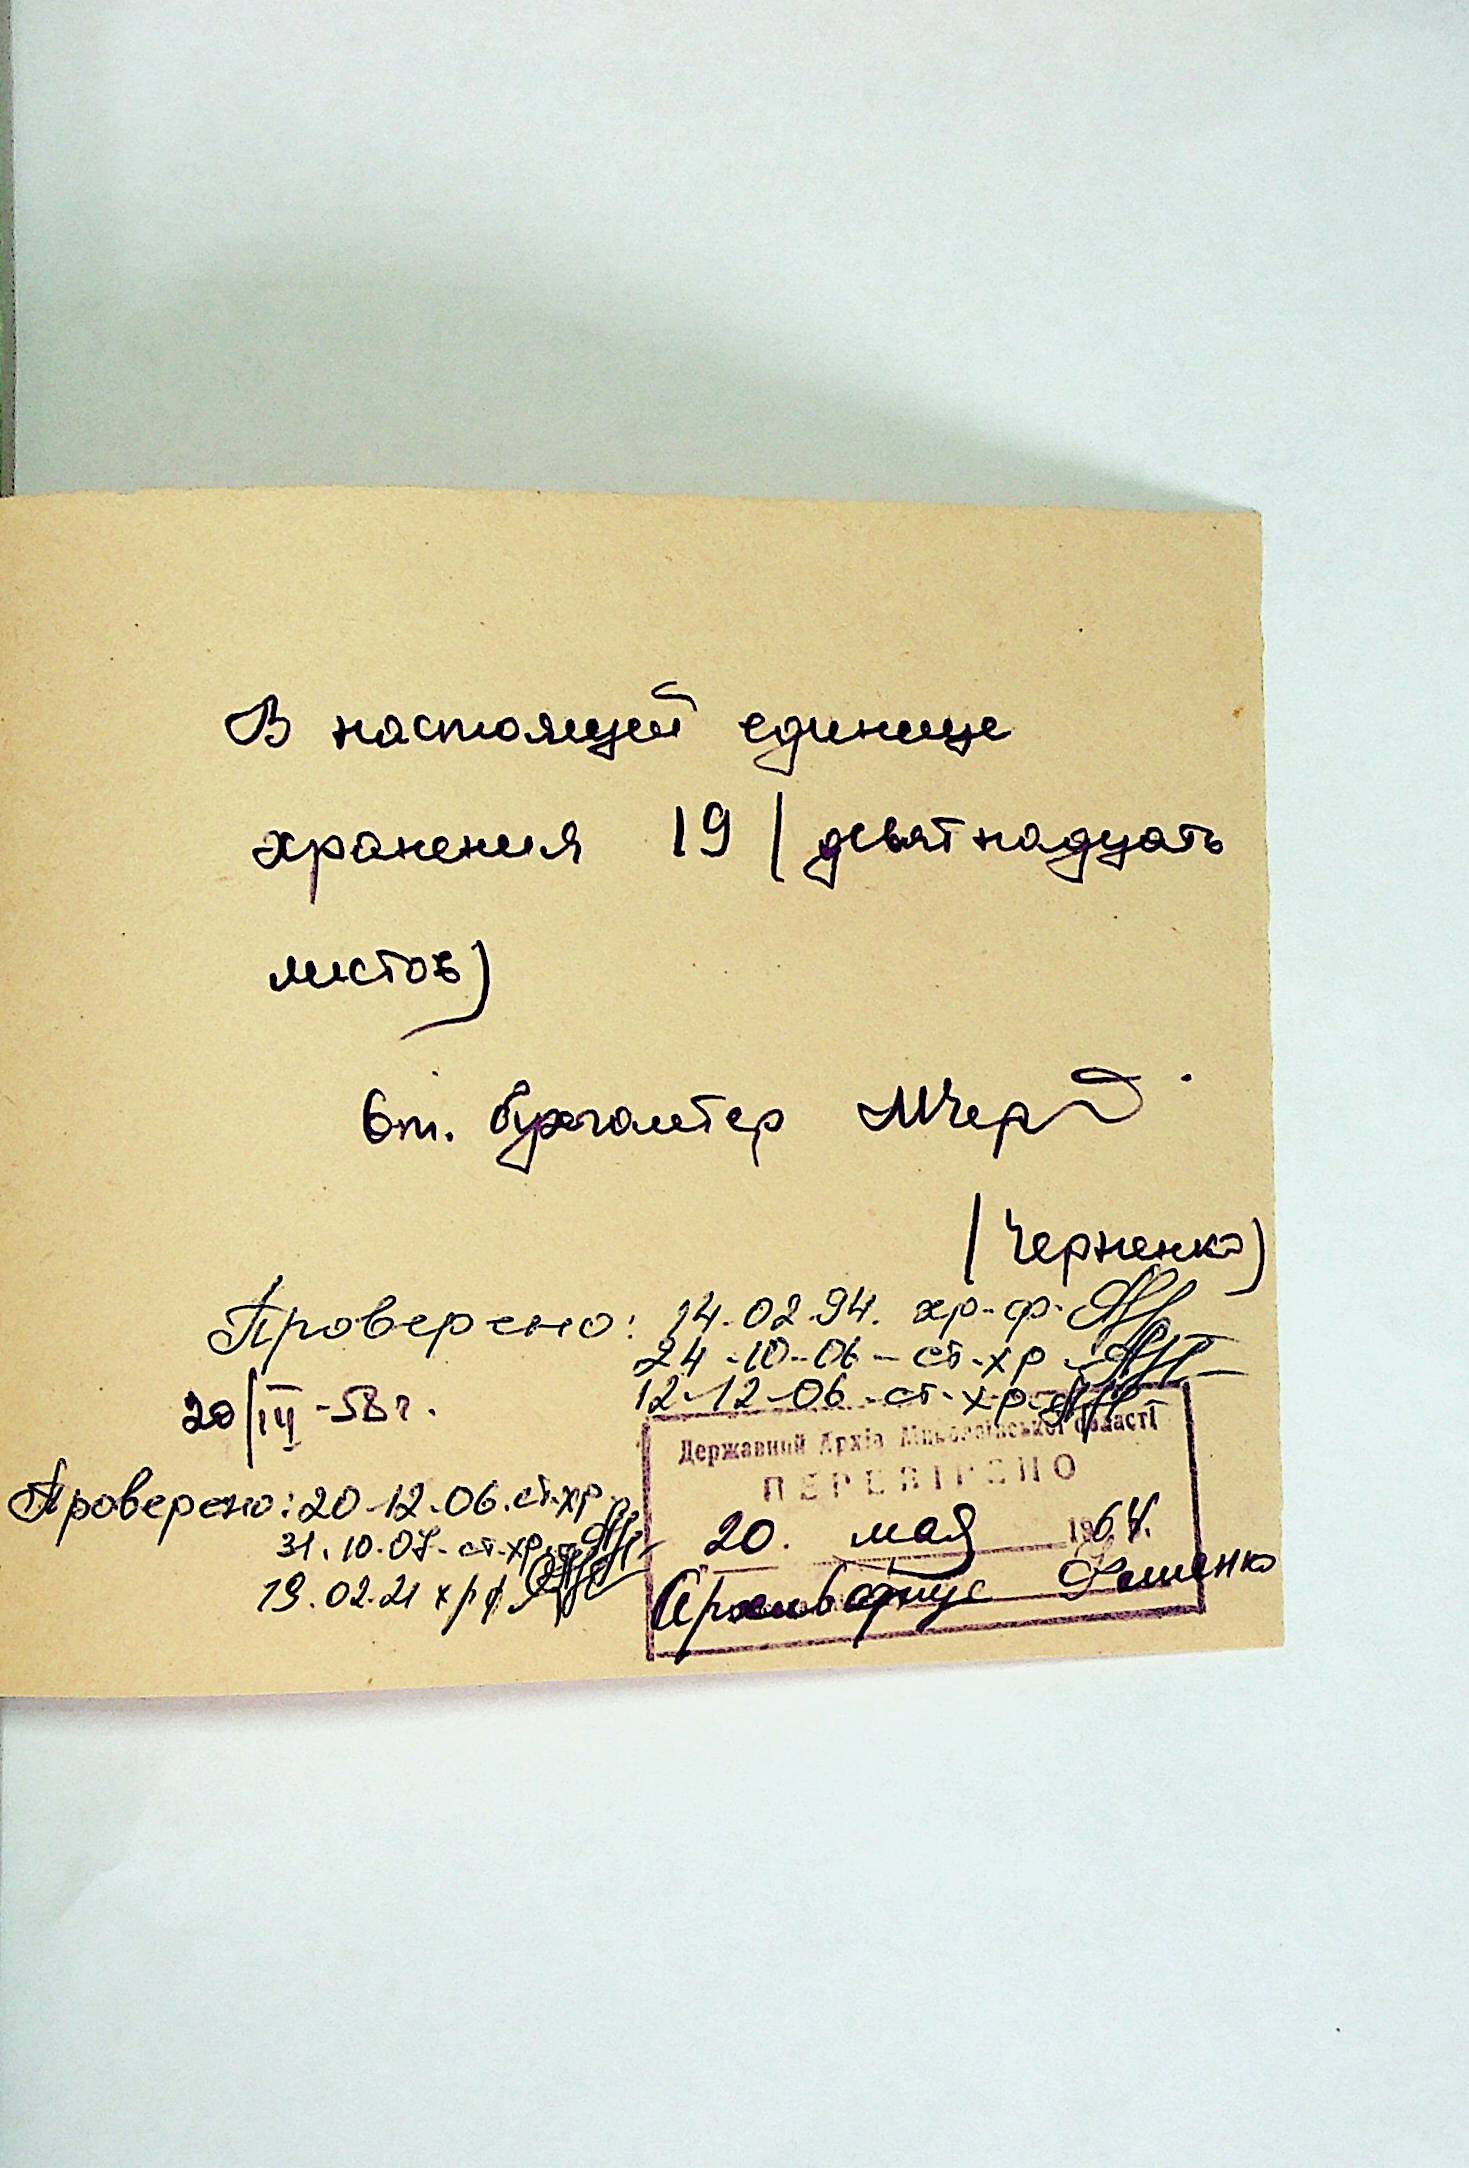 В настоящей единице
хранения 19 (девятнадцать
листов)
бухгалтер МЧер
(Черненко)
Проверено: 14.02.94. хр-ф-
24-10-06-ст-хр
12-12-06-ст-хр-
20/III-58 г.
Державний Архів Миколаївської області
ПЕРЕВІРЕНО
20. мая 1964.
Архивариус
Проверено: 20-12-06. ст-хр-
31.10.07-ст-хр.
19.02.21 хрф